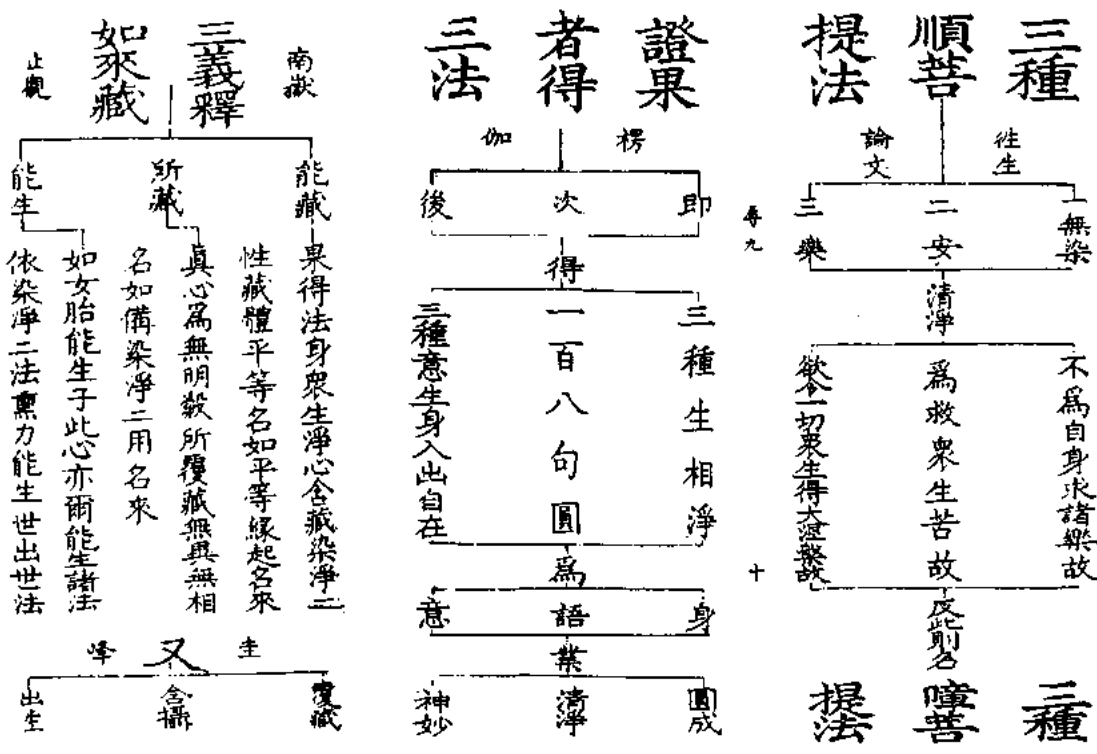 三種
順菩
提法
往生
論文
一無染
二安
三樂
清淨
不爲自身求諸樂故
爲救衆生苦故
欲令一切衆生得大涅槃故
反此則名
三種
障菩
提法
尋九
十
證果
者得
三法
楞
伽
即
次
後
得
三種生相淨
一百八句圓
三種意生身入出自在
爲
身
語
意
業
圓成
清淨
神妙
南嶽
三義釋
如來藏
止觀
能藏
果得法身衆生淨心含藏染淨二
性藏體平等名如平等緣起名來
所藏
眞心爲無明㲉所覆藏無異無相
名如備染淨二用名來
能生
如女胎能生子此心亦爾能生諸法
依染淨二法熏力能生世出世法
圭
又
峰
覆藏
含攝
出生